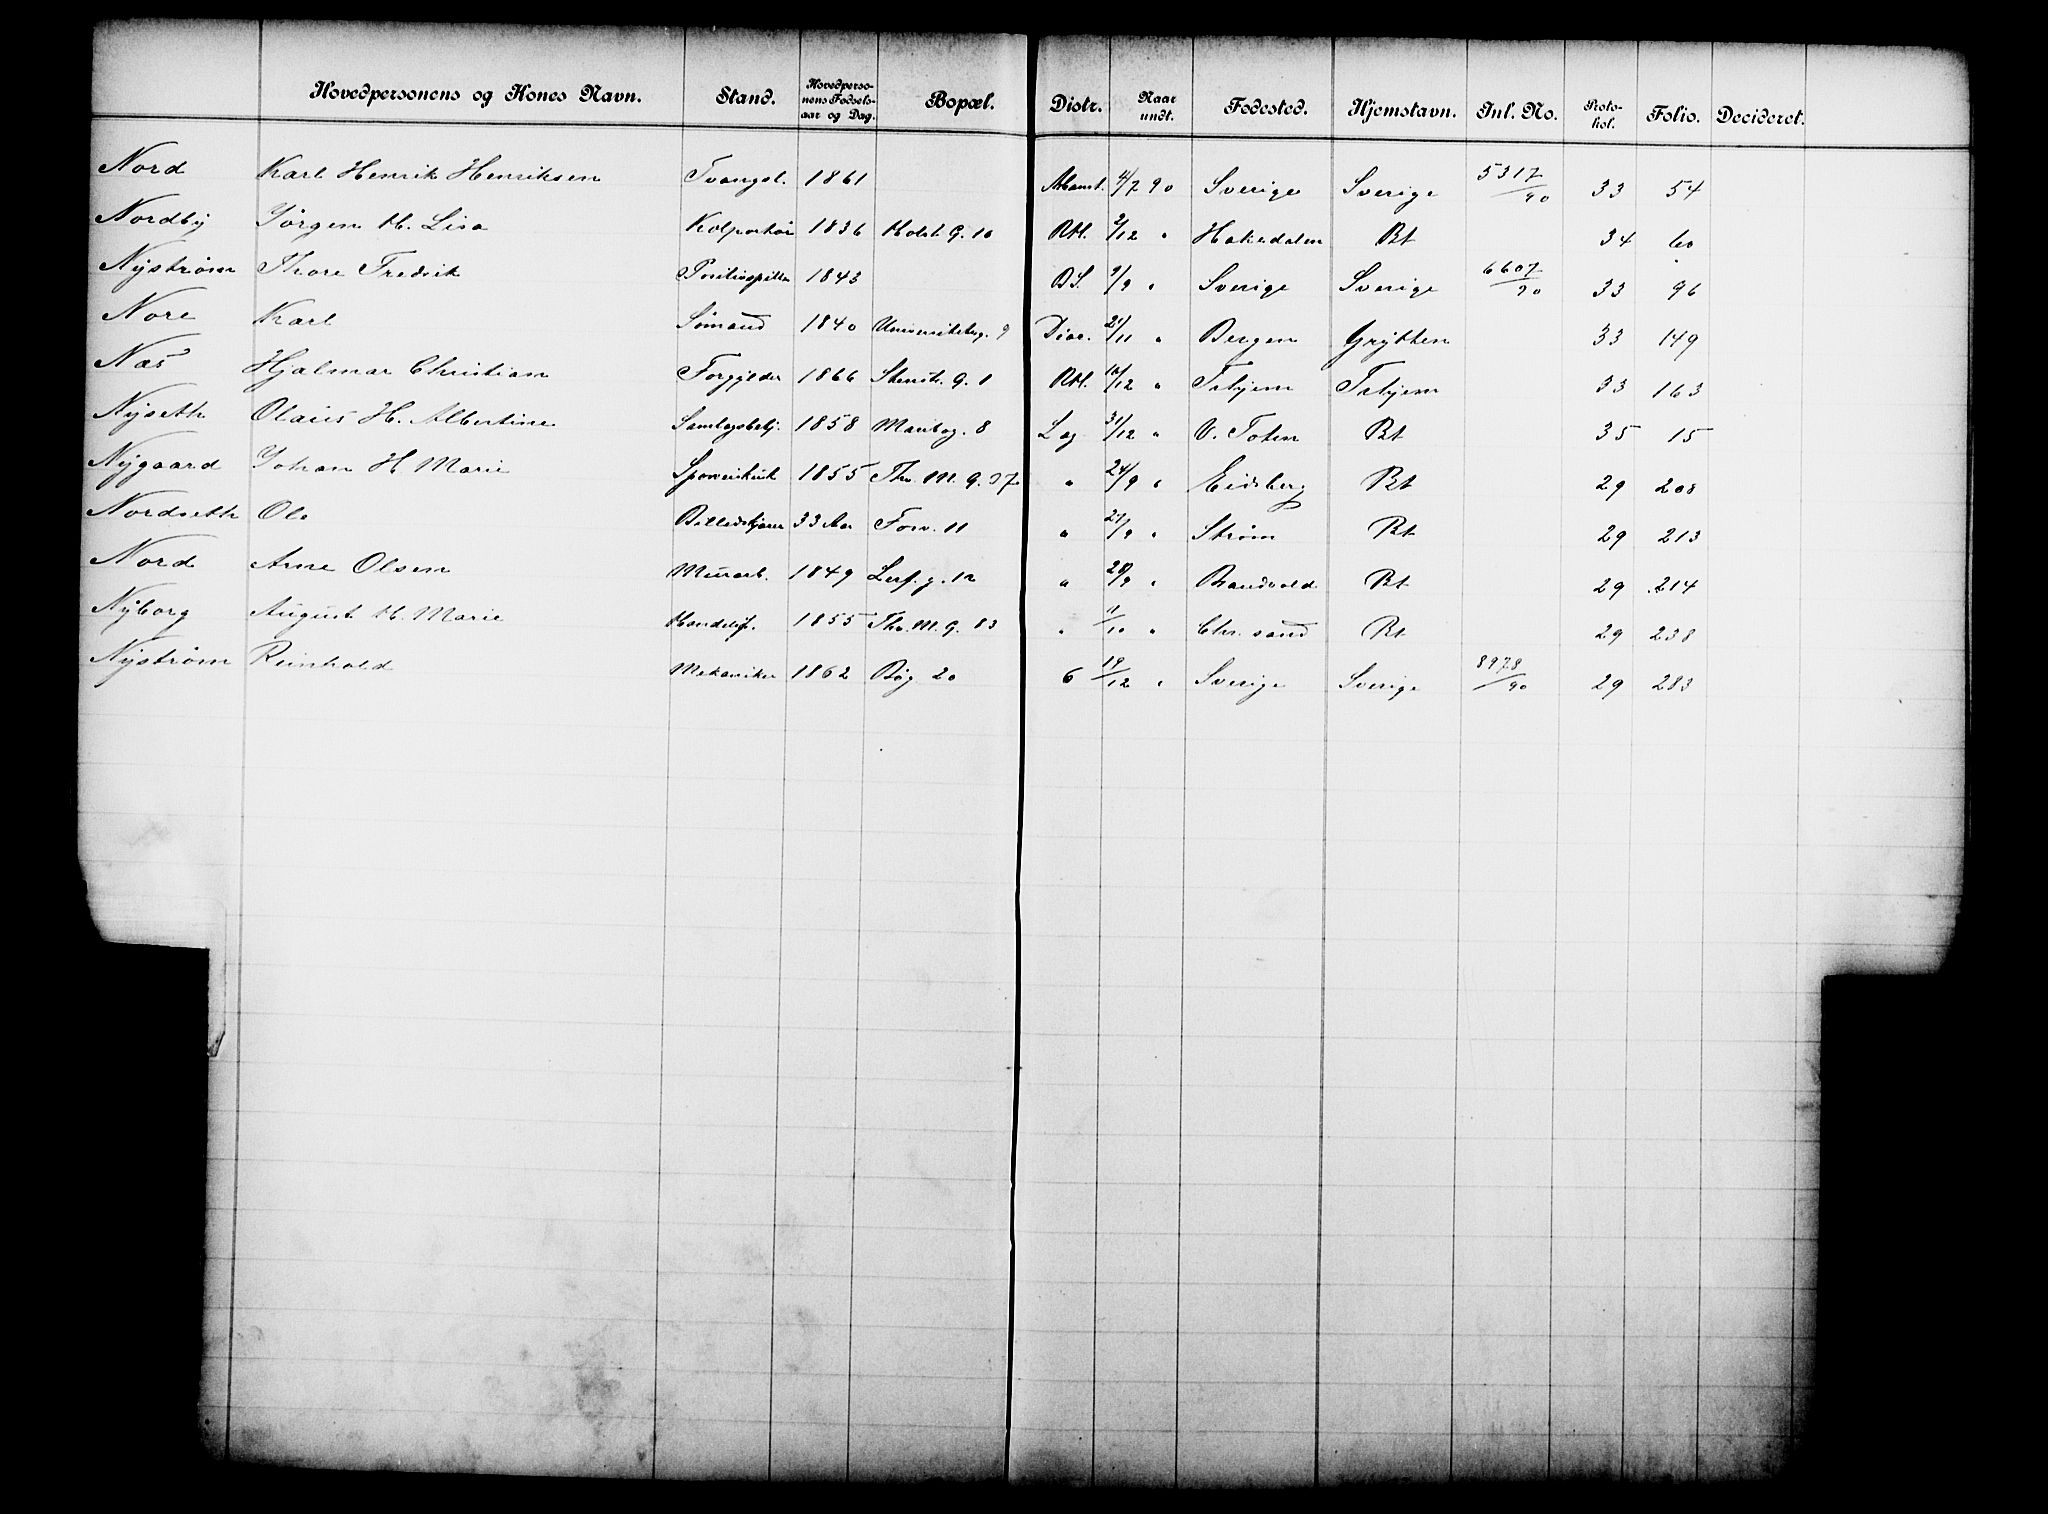 Hovedpersonens og Kones Navn. Stand. Hovedpersonens Fødselsaar og Dag. Bopæl. Distr. Naar undt. Fødested. Hjemstavn. Inl. No. Protokol. Folio. Decideret.
Nord Karl Henrik Henriksen Tvangsl. 1861 4/7 90 Sverige Sverige 5317/90 33 54
Nordby Jørgen H. Lisa Kolportør 1836 Holst. G. 10 Rtl. 2/12 " Hakedalen Bt 34 60
Nyström Thore Fredrik 1843 BS. 9/9 " Sverige Sverige 6607/90 33 96
Nore Karl Sømand 1840 Universitetsg. 9 Diac. 21/11 " Bergen Grytten 33 149
Næs Hjalmar Christian Forgylder 1866 Stenstr. G. 1 Rtl. 10/12 " Trhjem Trhjem 33 163
Nyseth Olaus H. Albertine Samlagsbetj. 1858 Maribog. 8 Lag 31/12 " V. Toten Bt 35 15
Nygaard Johan H Marie 1855 Thv. M. G. 97 " 24/9 " Eidsberg Bt 29 208
Nordseth Ole Billedskjærer 33 Aar Forv. 11 " 27/9 " Strøm Bt 29 213
Nord Arne Olsen Murarb. 1849 Lerf. g. 12 " 28/9 " Brandvold Bt 29 214
Nyborg August H. Marie Handelsf. 1855 Thv. M. G. 83 " 11/10 " Chr. sand Bt 29 238
Nyström Reinhold Mekaniker 1862 Bøg 20 6 19/12 " Sverige Sverige 8978/90 29 283